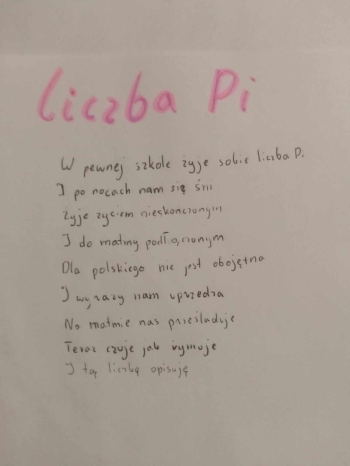 Liczba Pi
W pewnej szkole żyje sobie liczba Pi
I po nocach nam się śni
Żyje życiem nieskończonym
I do matmy podłączonym
Dla polskiego nie jest obojętna
I wyrazy nam uprzedza
Na matmie nas prześladuje
Teraz czuje jak rymuje
I tą liczbę opisuję